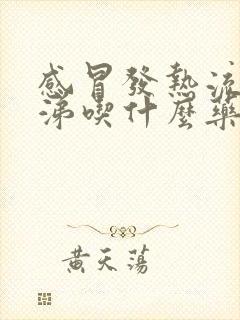 感冒發熱流
涕喫什麼藥
黃天蕩